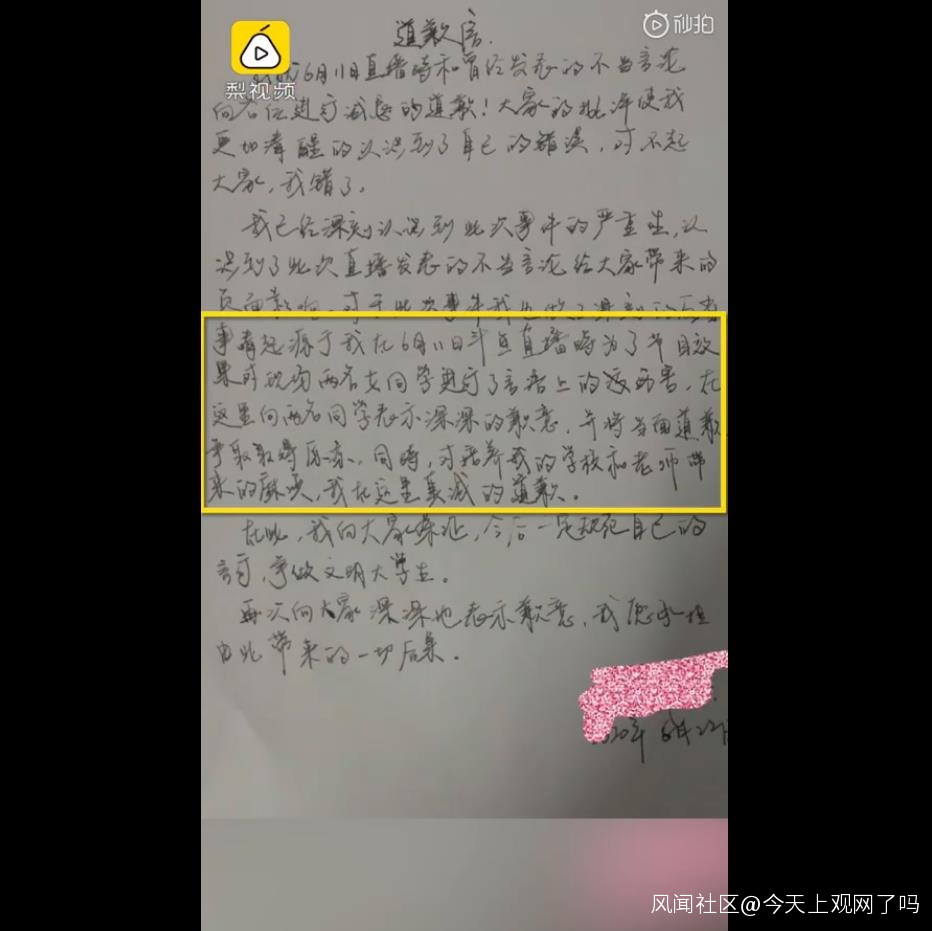 道歉信.
秒拍
梨视频
我就6月11日直播时和曾经发表的不当言论
向各位进行诚恳的道歉!大家的批评使我
更加清醒的认识到了自己的错误,对不起
大家,我错了。
我已经深刻认识到此次事件的严重性,认
识到了此次直播发表的不当言论给大家带来的
负面影响。对于此次事件我也做了深刻的反省
事情起源于我在6月11日斗鱼直播时为了节目效
果对现场两名女同学进行了言语上的伤害,在
这里向两名同学表示深深的歉意,并将当面道歉
争取取得原谅。同时,对培养我的学校和老师带
来的麻烦,我在这里真诚的道歉。
在此,我向大家保证,今后一定规范自己的
言行,争做文明大学生。
再次向大家深深地表示歉意,我愿承担
由此带来的一切后果。
2020年6月22日
风闻社区@今天上观网了吗